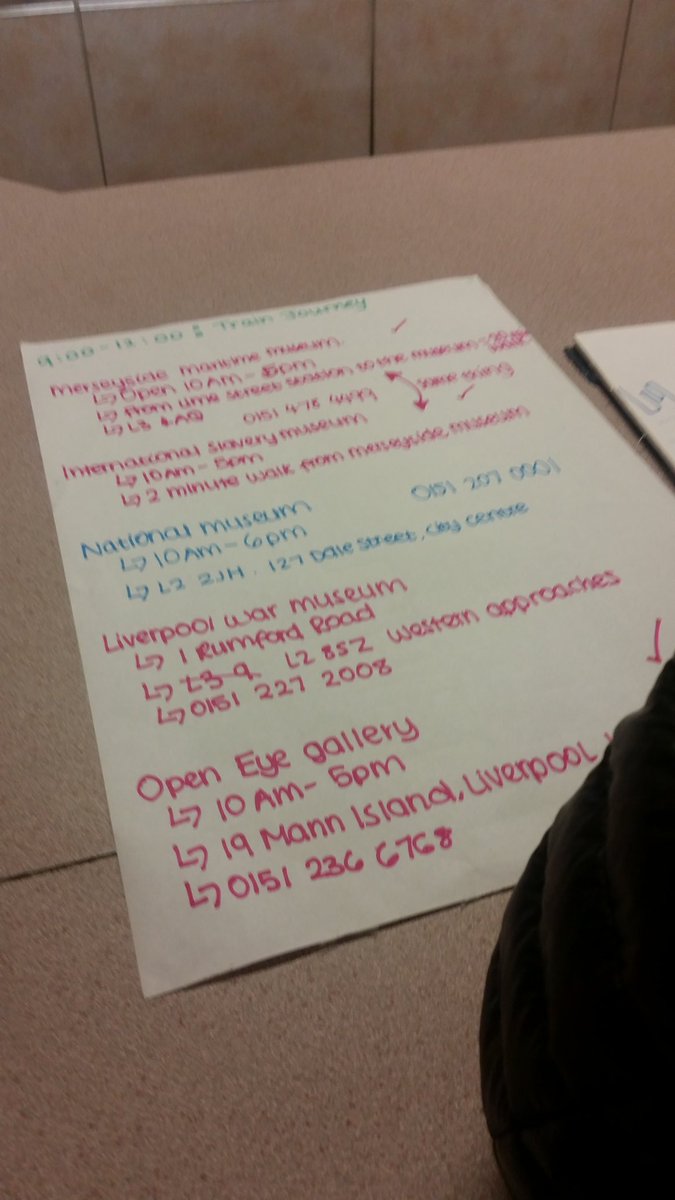 9:00-12:00 : Train Journey
Merseyside maritime museum.
↳ Open 10AM-5pm
↳ From Lime street station to the museum =
↳ L3 4AQ 0151 478 4499 same thing
International Slavery museum
↳ 10AM-5pm
↳ 2 minute walk from merseyside museum
National museum 0151 207 0001
↳ 10AM-6pm
↳ L2 2JH. 127 Dale street, city centre
Liverpool war museum
↳ 1 Rumford Road
↳ L3 9 L2 8SZ western approaches
↳ 0151 227 2008
Open Eye gallery
↳ 10 AM-5pm
↳ 19 Mann Island, Liverpool
↳ 0151 236 6768